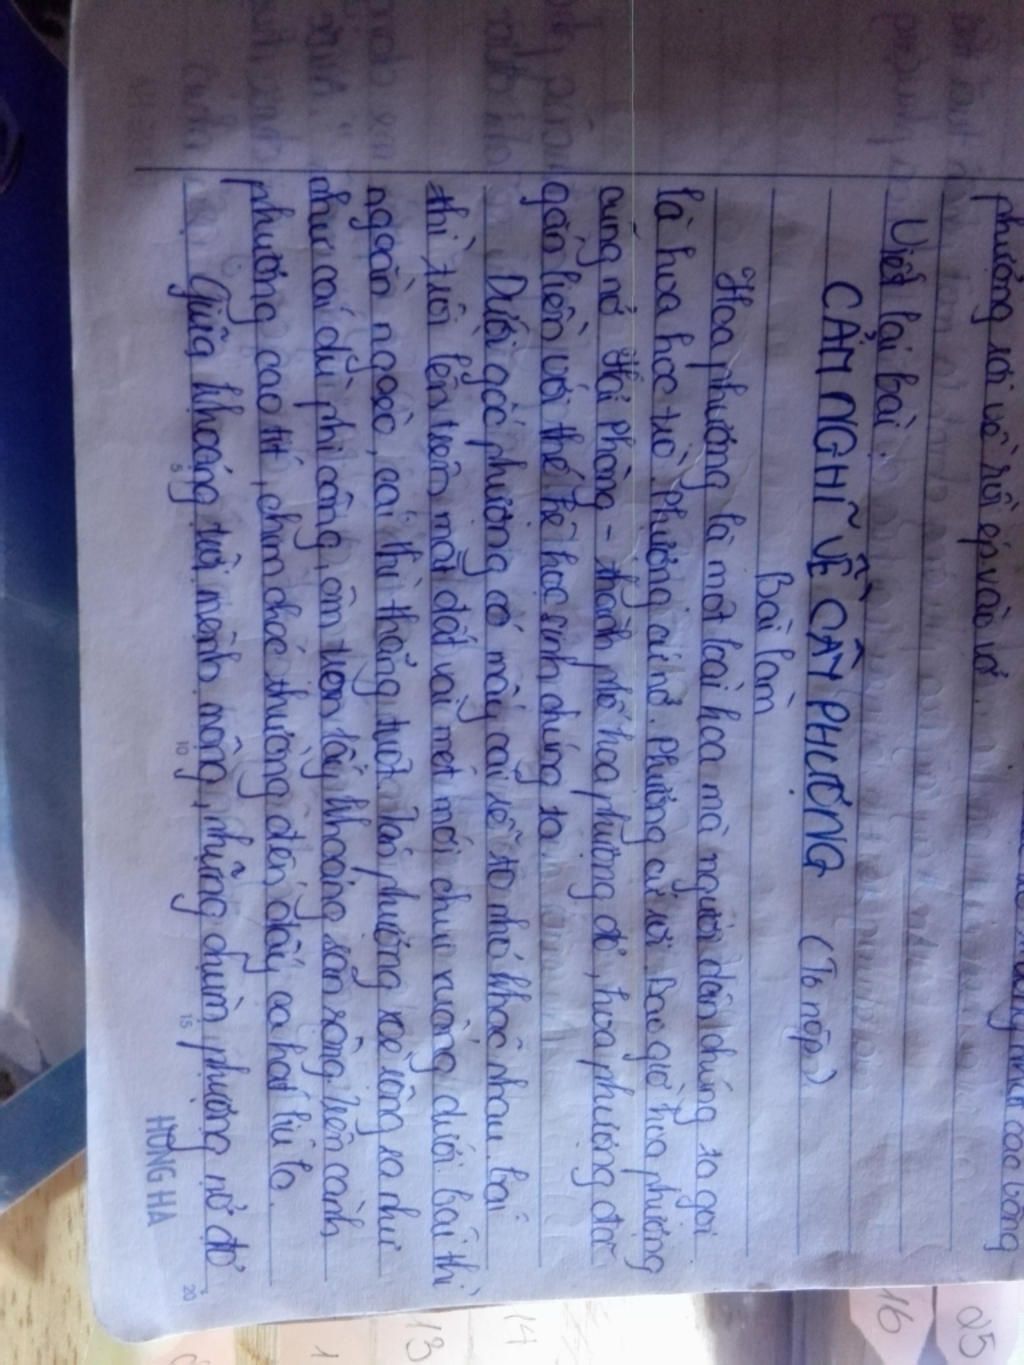 phượng rơi về rồi ép vào vở.
Viết lại bài:
CẢM NGHĨ VỀ CÂY PHƯỢNG (Tờ nộp)
Bài làm
Hoa phượng là một loài hoa mà người dân chúng ta gọi
là hoa học trò. Phượng ai nở. Phượng cứ rơi. Bao giờ hoa phượng
cũng nở. Hải Phòng - thành phố hoa phượng đỏ, hoa phượng đã
gắn liền với thế hệ học sinh chúng ta.
Dưới gốc phượng có mấy cái rễ to nhỏ khác nhau. Cái
thì trồi lên trên mặt đất vài mét mới chui xuống dưới. Cái thì
ngoằn ngoèo, cái thì thẳng tuột. Tán phượng xoè rộng ra như
như cái dù phi công, ôm trọn lấy khoảng sân rộng. Trên cành
phượng cao tít, chim chóc thường đến đây ca hát líu lo.
Giữa khoảng trời mênh mông, những chùm phượng nở đỏ
5 10 15 20
HỒNG HÀ
25
16
14
13
1